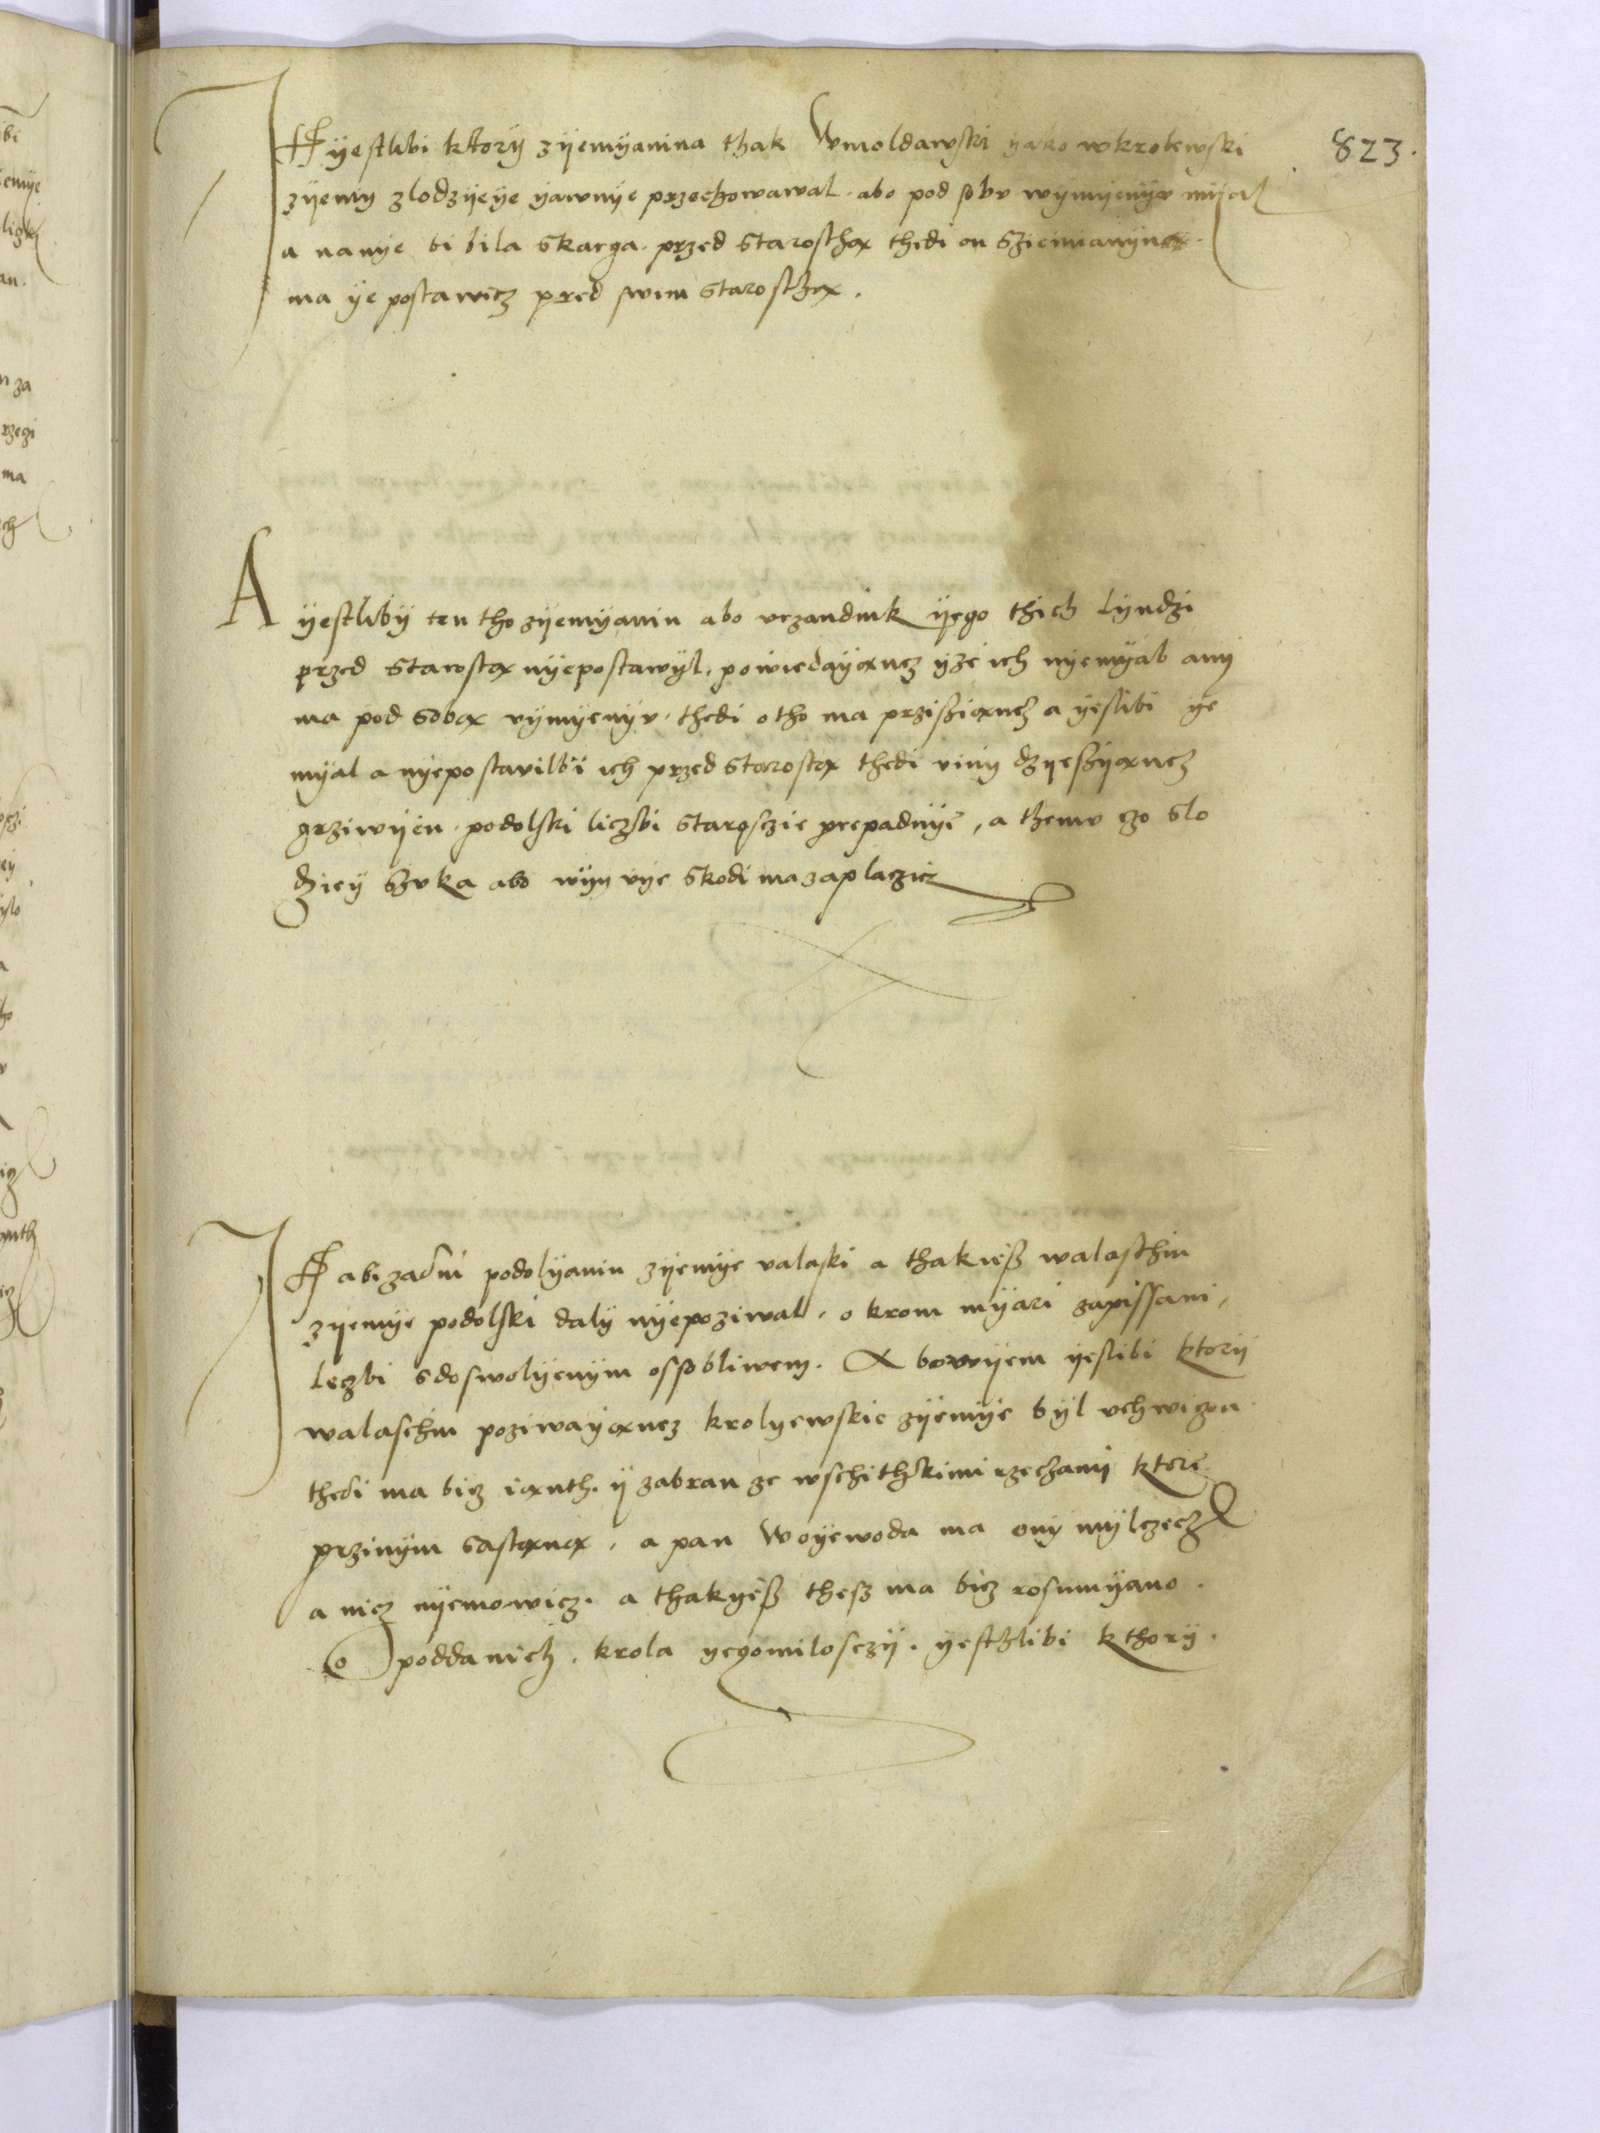 823.
Iſſ yestlibi ktory zyemyanina thak Wmoldawski yako w krolewski
zyemy zlodzyeye yawnye przechowawal. abo pod sobv wymyenyv myal
a nanye bi bila skarga. przed starosthą thedi on sziemianyn.
ma ye postawicz pred swim starosthą.
A yestliby ten tho zyemyanin abo vrzandnik yego thich lyudzi
przed starostą nyepostawyl, powiedayąncz yze ich nyemyal any
ma pod sobą vymyenyv. thedi otho ma przisziąncz a yeslibi ye
myal a nyepostavilbi ich przed starostą thedi viny dzyeszyąncz
grziwyen. podolski liczbi staroszcie prepadnye, a themv czo slo
dziey szvka abo wyn vye skodi ma zaplaczicz
Iſſ abi zadni podolyanin zyemye valaski a thakiesz walaschin
zyemye podolski daly nyepoziwal, okrom myari zapissani,
leczbi sdoswolyenym ossobliwem. A bowyem yeslibi ktory
walaschin poziwayąncz krolyewskie zyemye byl vchwiczon
thedi ma bicz iąnth. y zabran ze wschithkimi rzeczami ktore
przinym sastąną, a pan Woyewoda ma ony mylczecz
a nicz nyemowicz. a thakyesz thesz ma bicz rosumyano.
o poddanich. krola yegomilosczy. yesthlibi kthory.